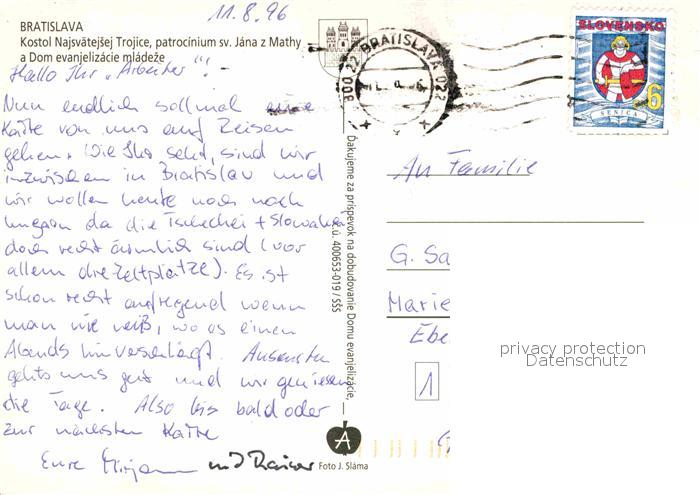 11.8.96
BRATISLAVA
Kostol Najsvätejšej Trojice, patrocínium sv. Jána z Mathy
a Dom evanjelizácie mládeže
Hallo Ihr „Arbeiter"!
Nun endlich soll mal eine
Karte von uns auf Reisen
gehen. Wie Ihr seht, sind wir
inzwischen in Bratislav und
wir wollen heute noch nach
Ungarn da die Tschechei + Slowakei
doch recht ärmlich sind (vor
allem die Zeltplätze). Es ist
schon recht aufregend wenn
man nie weiß, wo es einen
Abends hinverschlägt. Ansonsten
gehts uns gut und wir geniesen
die Tage. Also bis bald oder
zur nächsten Karte
Eure Mirjam und Rainer
Ďakujeme za príspevok na dobudovanie Domu evanjelizácie,
č.ú. 400653-019 / SŠS
A
Foto J. Sláma
BRATISLAVA 022
SLOVENSKO
6
SENICA
An Familie
G. Sa
Marie
Ebe
1
privacy protection
Datenschutz